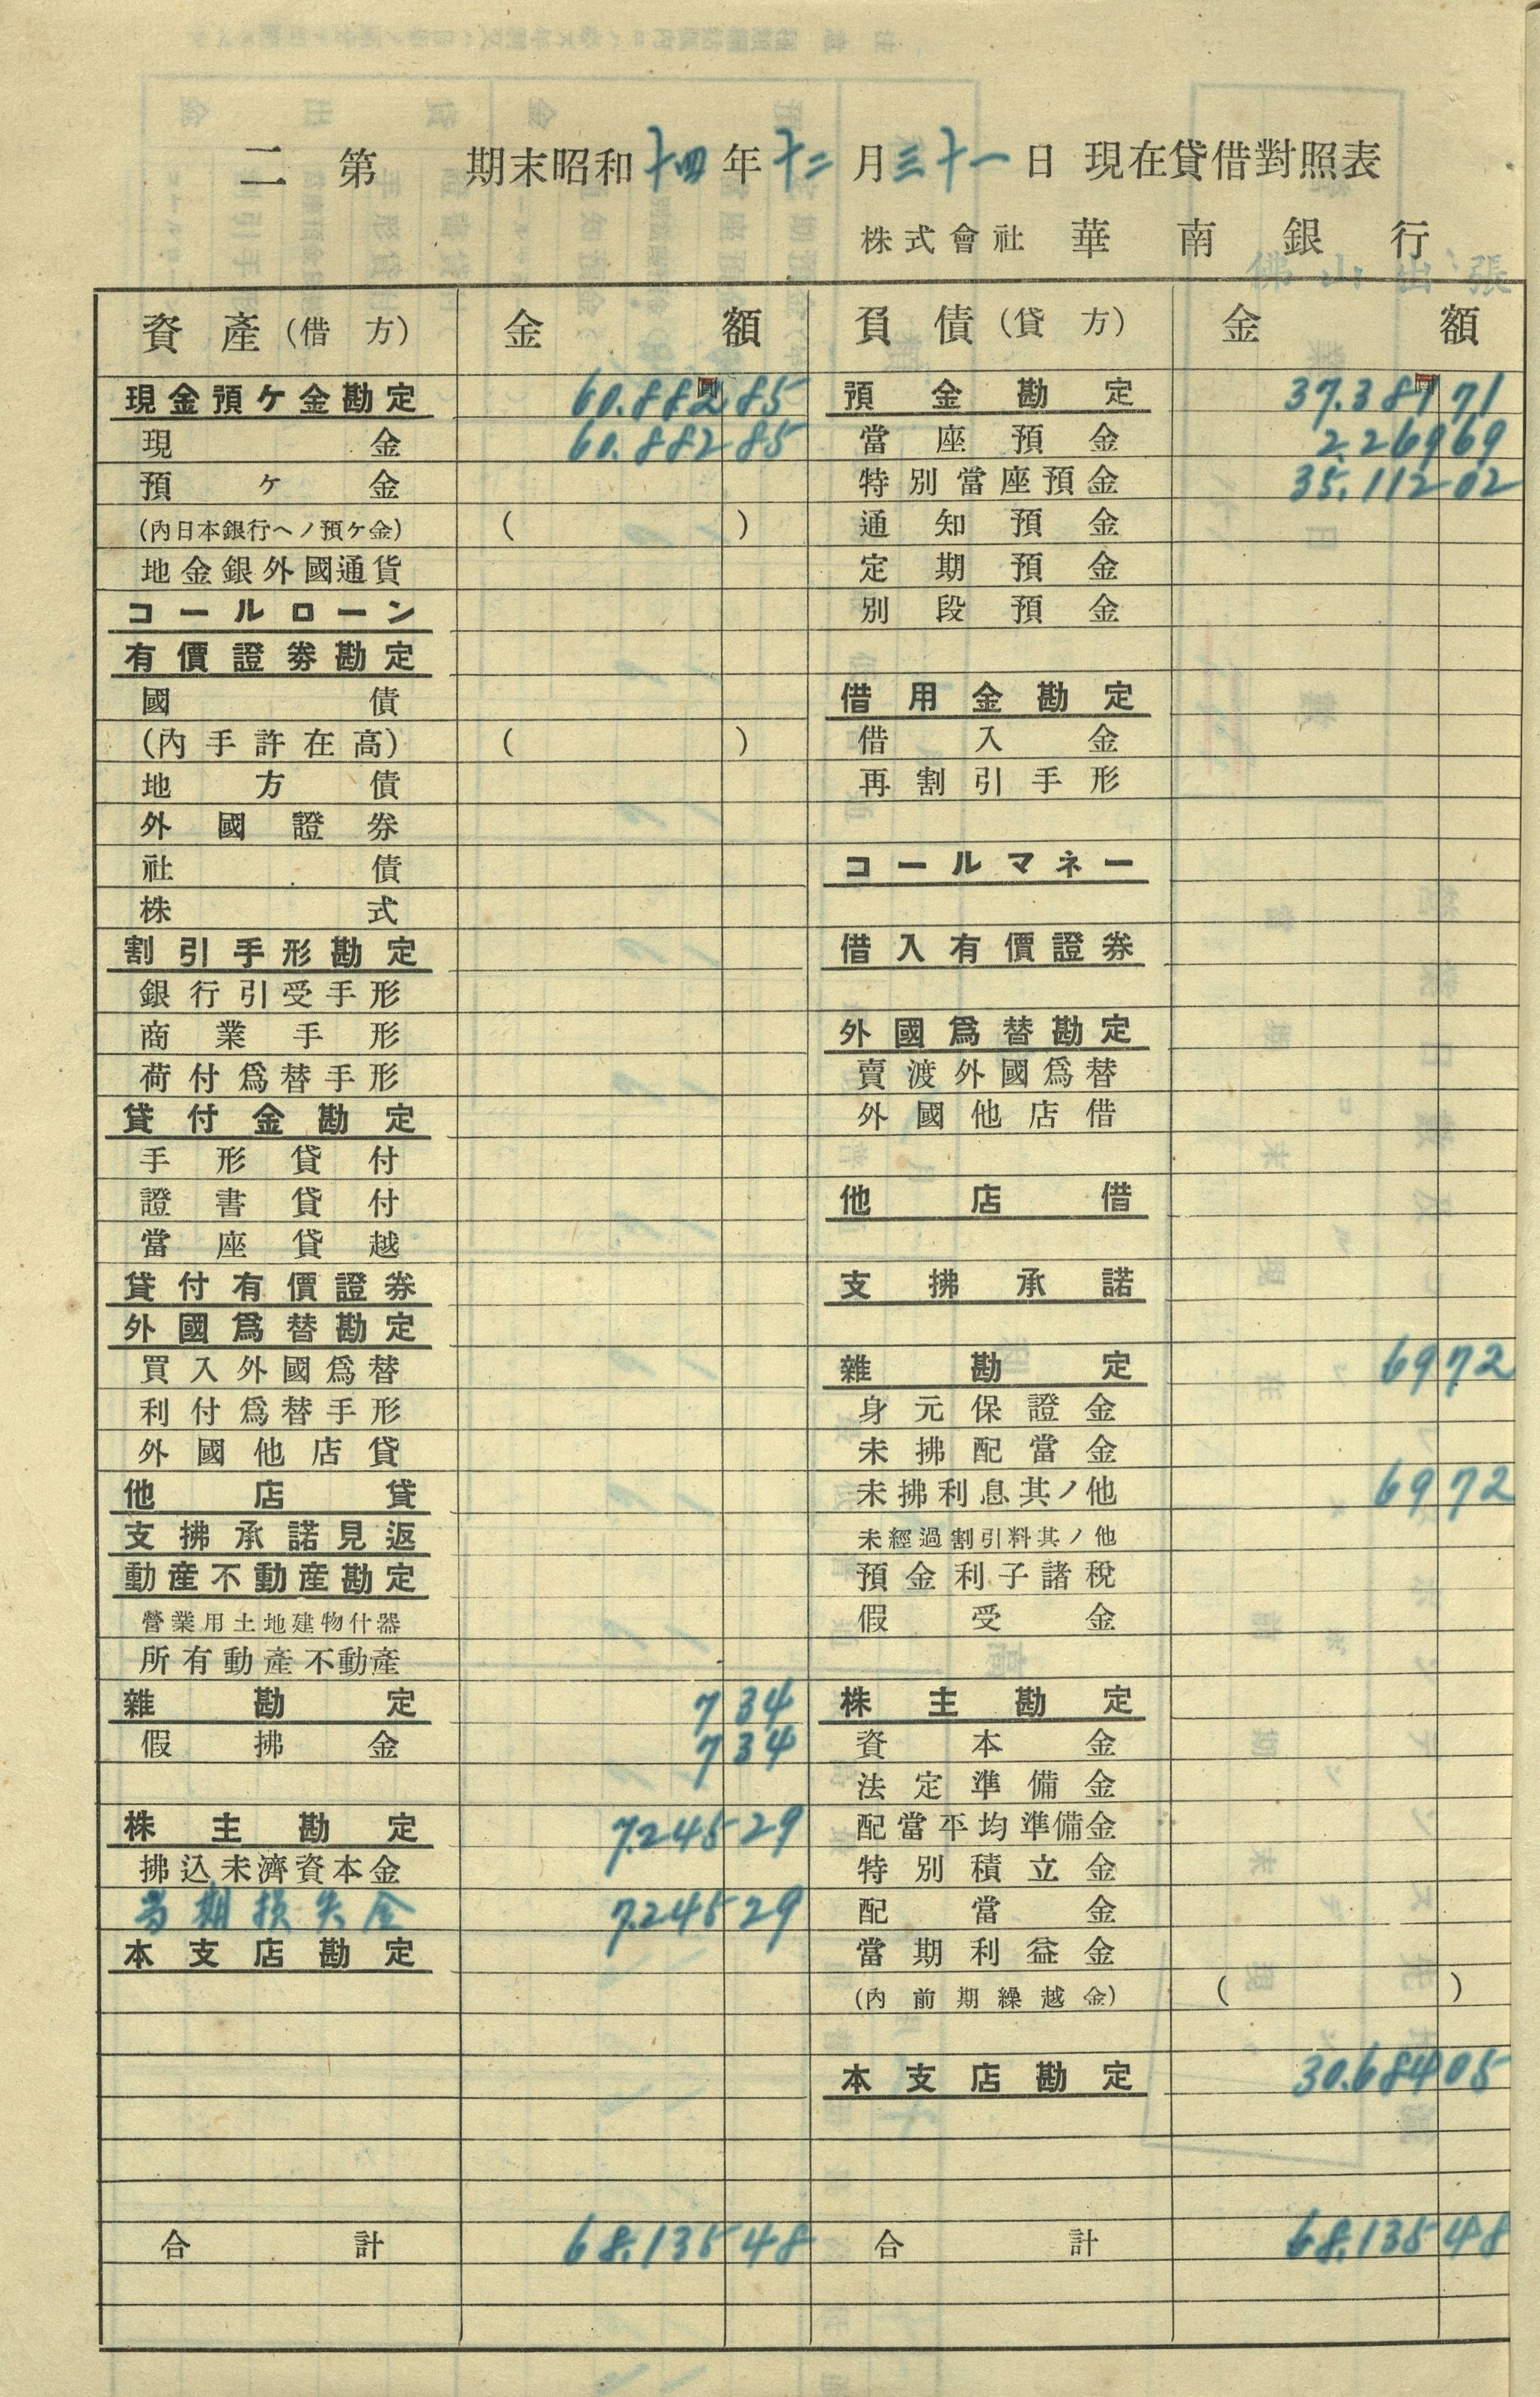 二 第 期末昭和十四年十二月三十一日 現在貸借對照表
株式會社 華南銀行
佛山出張
資產(借方) 金額 負債(貸方) 金額
現金預ケ金勘定 60.882 85 預金勘定 37.381 71
現金 60.882 85 當座預金 2.269 69
預ケ金 特別當座預金 35.112 02
(內日本銀行ヘノ預ケ金) ( ) 通知預金
地金銀外國通貨 定期預金
コールローン 別段預金
有價證券勘定
國債 借用金勘定
(內手許在高) ( ) 借入金
地方債 再割引手形
外國證券
社債 コールマネー
株式
割引手形勘定 借入有價證券
銀行引受手形
商業手形 外國爲替勘定
荷付爲替手形 賣渡外國爲替
貸付金勘定 外國他店借
手形貸付
證書貸付 他店借
當座貸越
貸付有價證券 支拂承諾
外國爲替勘定
買入外國爲替 雜勘定 69 72
利付爲替手形 身元保證金
外國他店貸 未拂配當金
他店貸 未拂利息其ノ他 69 72
支拂承諾見返 未經過割引料其ノ他
動產不動產勘定 預金利子諸稅
營業用土地建物什器 假受金
所有動產不動產
雜勘定 7 34 株主勘定
假拂金 7 34 資本金
法定準備金
株主勘定 7.245 29 配當平均準備金
拂込未濟資本金 特別積立金
当期損失金 7.245 29 配當金
本支店勘定 當期利益金
(內前期繰越金) ( )
本支店勘定 30.684 05
合計 68.135 48 合計 68.135 48